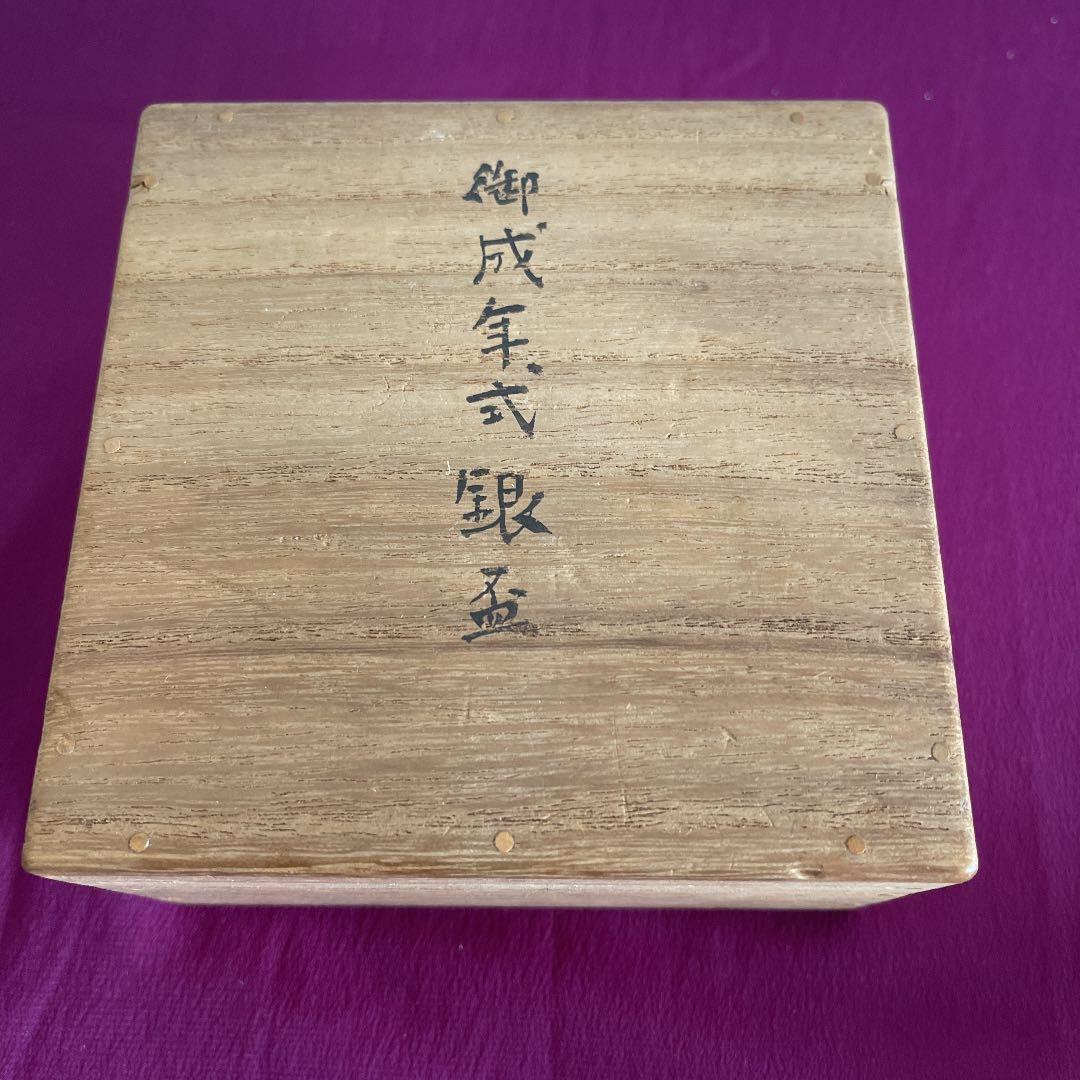 御成年式銀盃